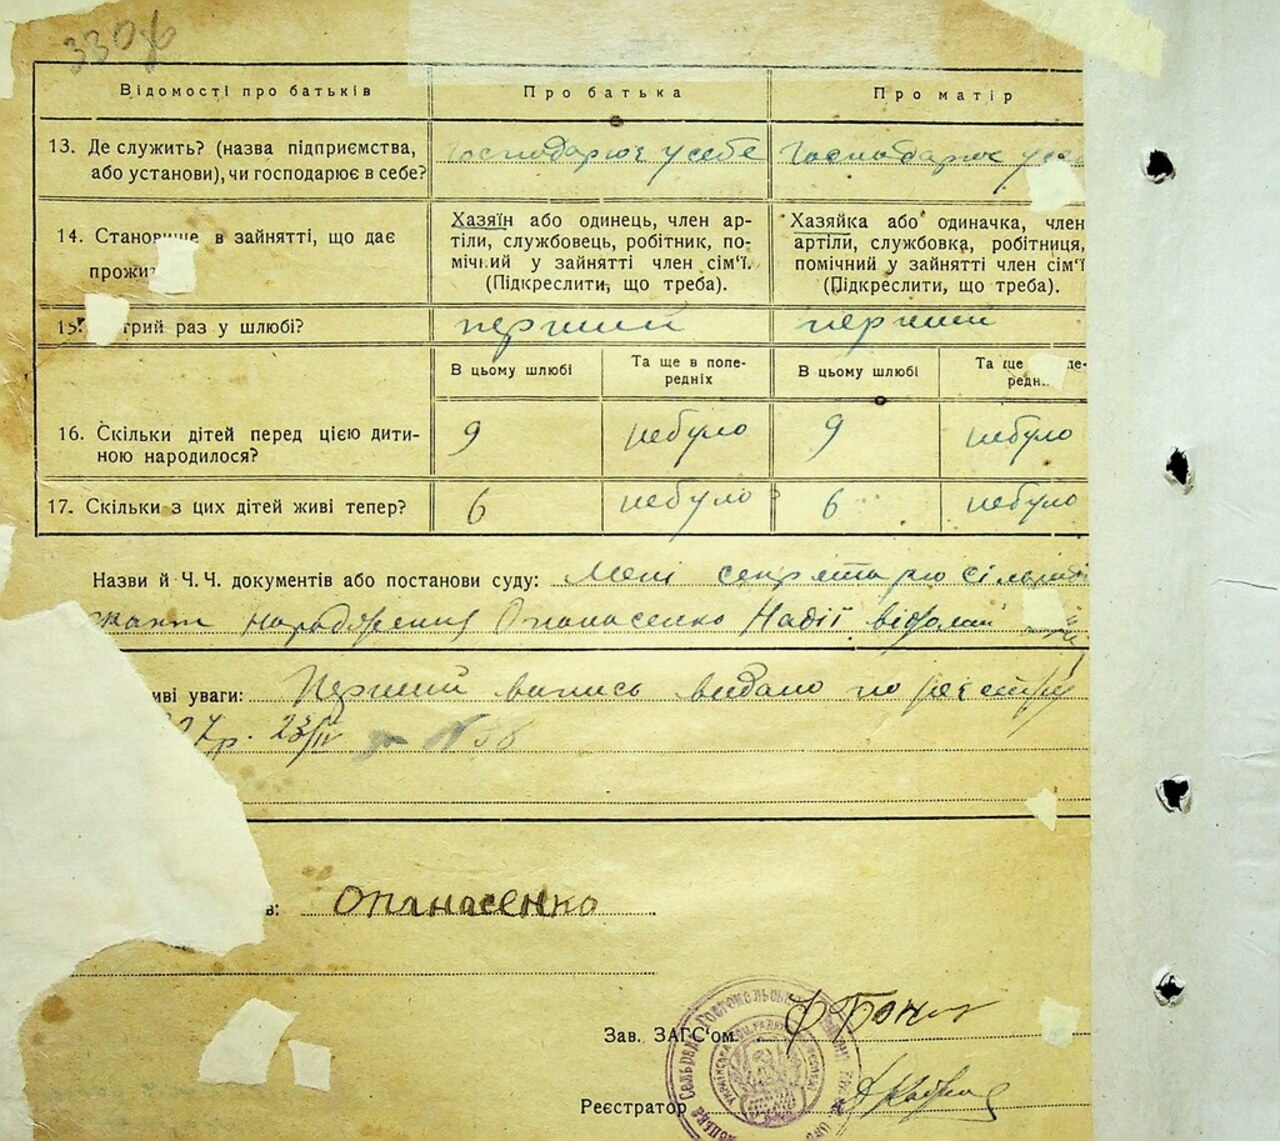 3306
Відомості про батьків Про батька Про матір
13. Де служить? (назва підприємства, або установи), чи господарює в себе?
Господарює у себе
Господарює у себе
14. Становище в зайнятті, що дає
прожит
Хазяїн або одинець, член ар-
тіли, службовець, робітник, по-
мічний у зайнятті член сім'ї.
(Підкреслити, що треба).
Хазяйка або одиначка, член
артіли, службовка, робітниця,
помічний у зайнятті член сім'ї
(Підкреслити, що треба).
15. трий раз у шлюбі? перший перший
В цьому шлюбі
Та ще в попе-
редніх
В цьому шлюбі
Та ще пе-
редн
16. Скільки дітей перед цією дити-
ною народилося?
9 небуло 9 небуло
17. Скільки з цих дітей живі тепер? 6 небуло 6 небуло
Назви й Ч. Ч. документів або постанови суду: Мені секретарю сільради
народження Опанасенко Надії відомий
иві уваги: Перший випись видано по реєстру
27р. 23/IV № 38
в: Опанасенко
Зав. ЗАГС'ом
Реєстратор